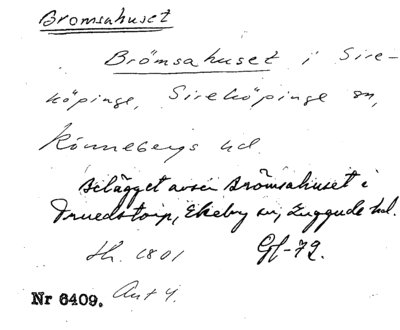 Bromsahuset
Brömsahuset i Sire-
köpinge, Sireköpinge sn,
Rönnebergs hd.
Belägget avser Brömsahuset i
Truedstorp, Ekeby sn, Luggude hd.
Sk. 1801 Gf-72.
Nr 6409. Ant 4.